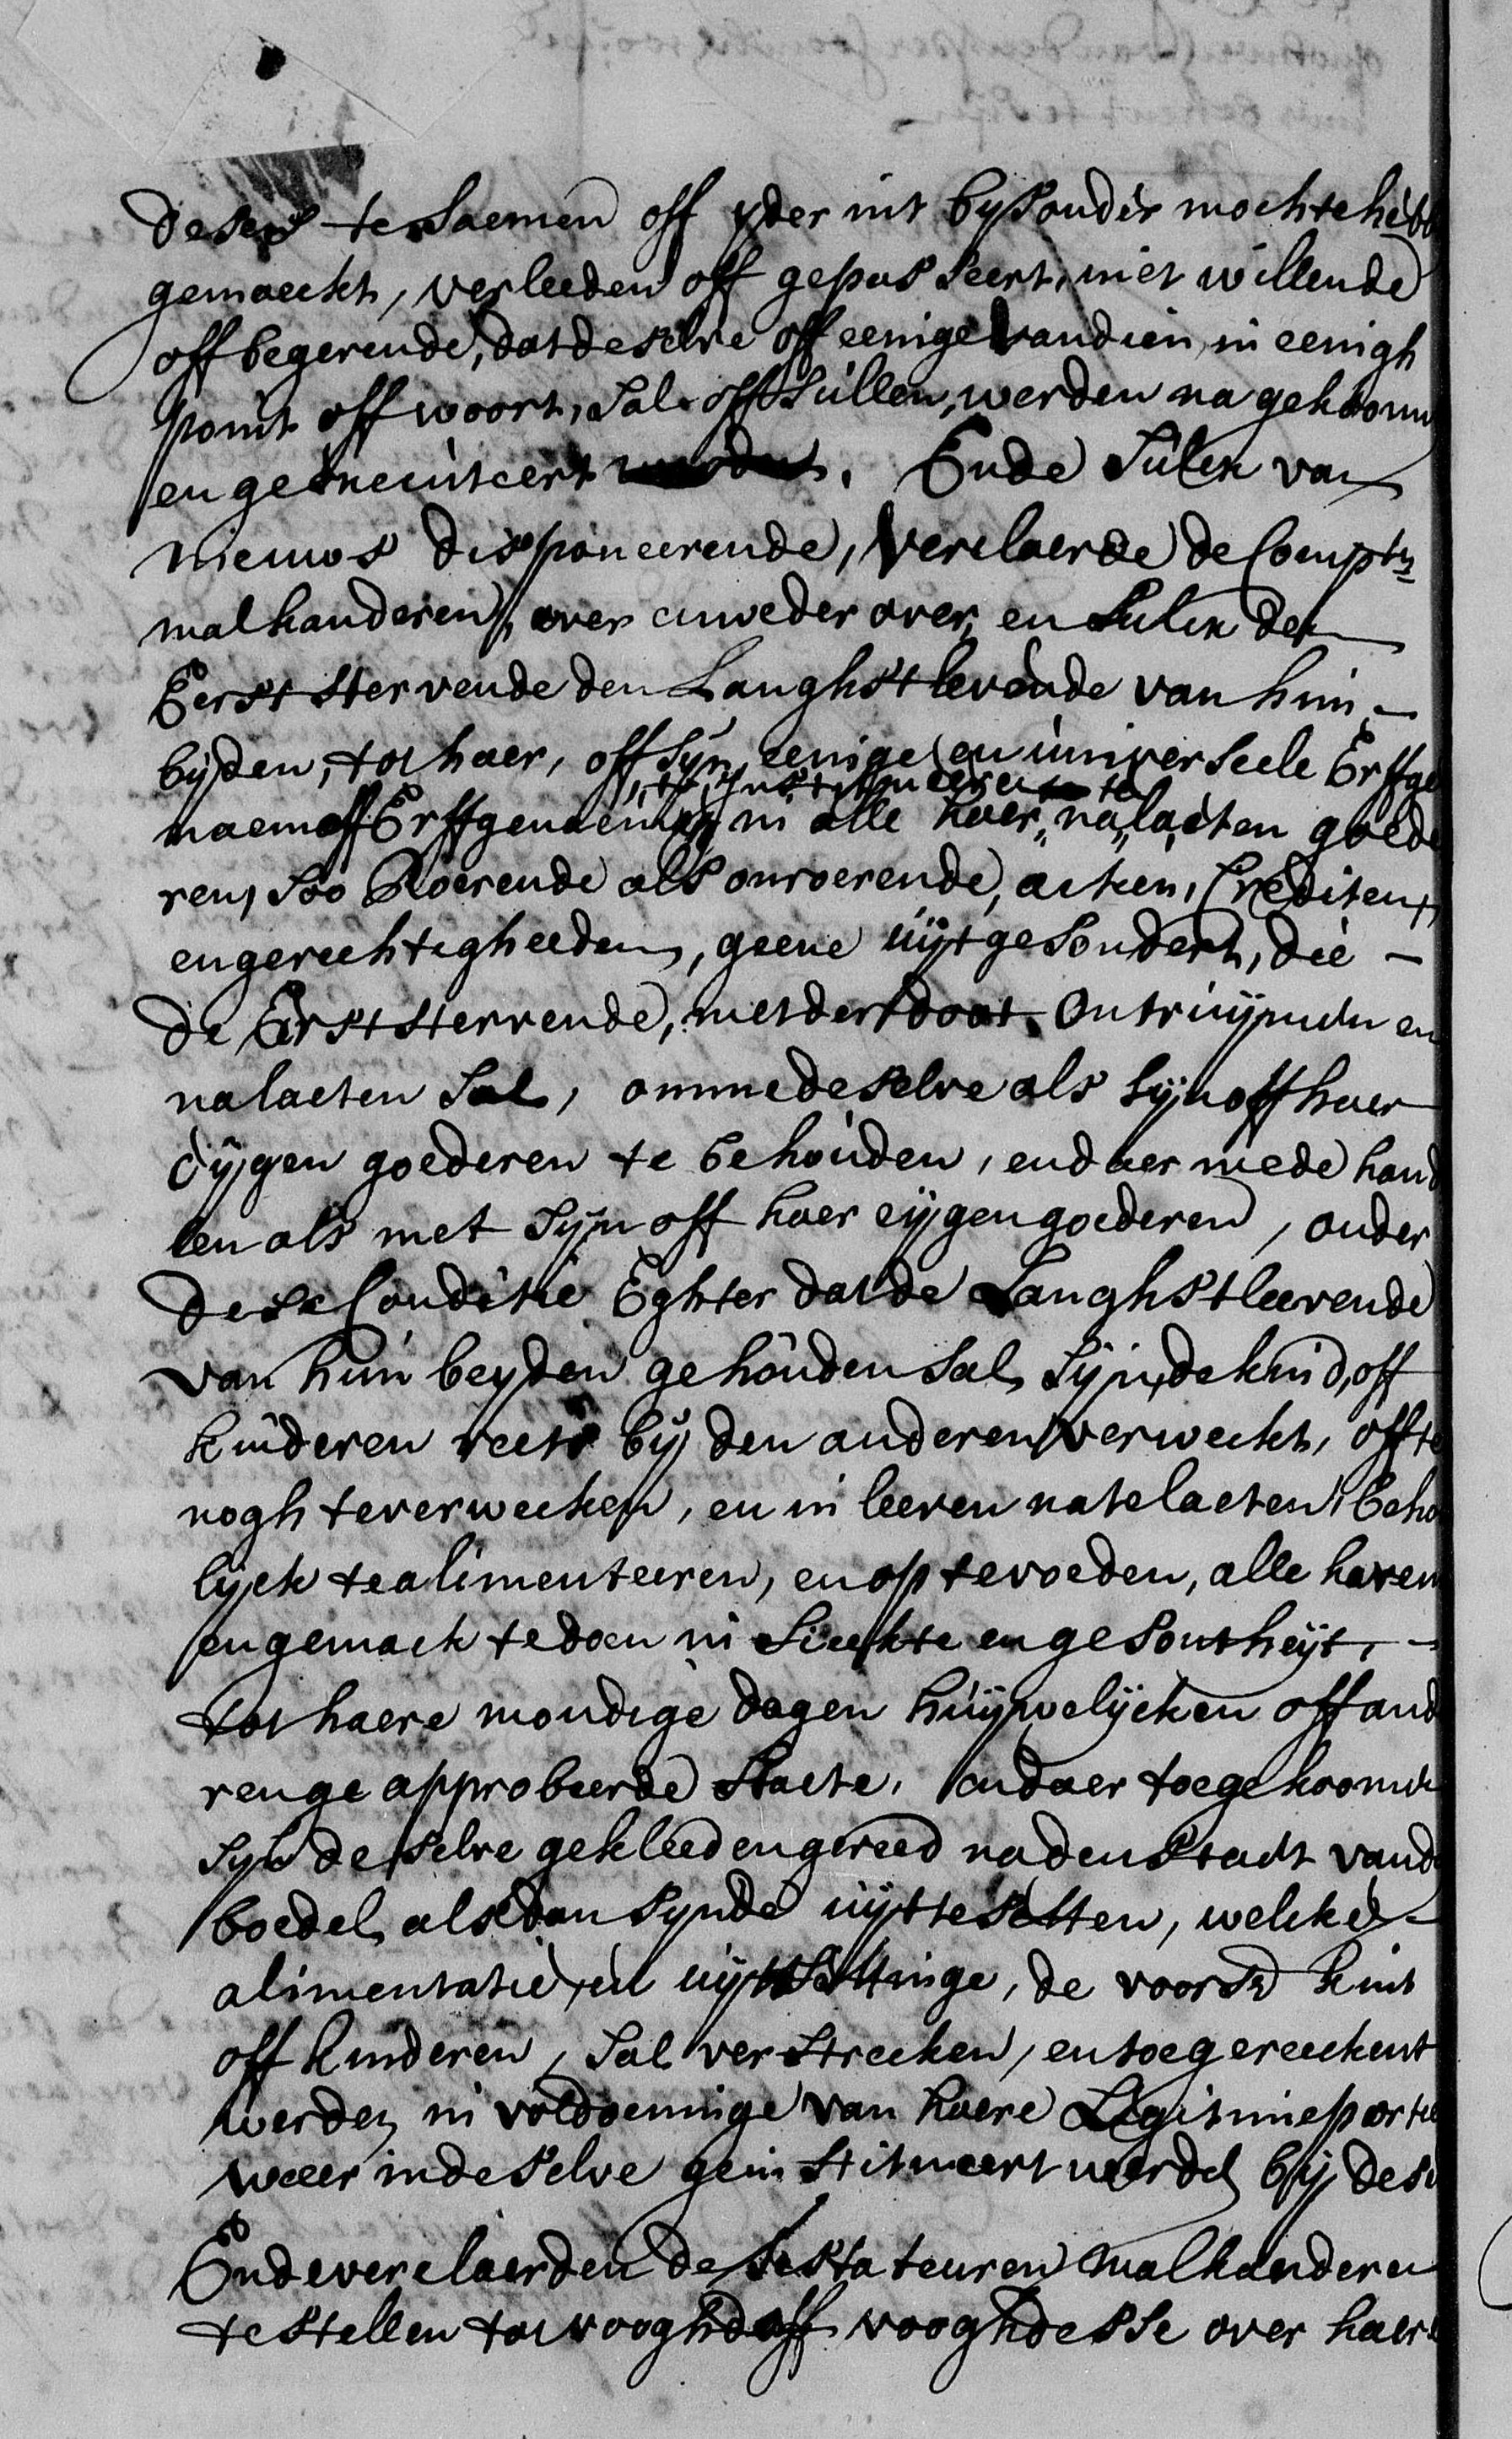 desen te saemen off yder int bysonder mochte hebb
gemaeckt, verleeden off gepasseert, niet willende
off begerende, dat deselve off eenige van dien in eenigh
point off woort, sal off sullen, werden nagekoom
en geexecuteert. Ende sulcx van
nieuws disponeerende, verclaerde de Compten
malkanderen, over en weder over, en sulcx de
Eerst stervende den Langhstlevende van hun
byden, tot haer, off syn eenige en universeele Erffge
naem off Erffgenaemen te institueeren in alle haer na te laeten goede
ren, soo Roerende als onroerende, actien, Crediten,
en gerechtigheeden, geene uijtgesondert, die
de Eerststervende, metter doot ontruijmen en
nalaeten sal, omme deselve als sijn off haer
eijgen goederen te behouden, en daer mede hand
len als met sijn off haer eijgen goederen, onder
dese Conditie Eghter dat de Langhstleevende
van hun beyden gehouden sal sijn, de kind, off
kinderen reets bij den anderen verweckt, offte
nogh te verwecken, en in leeven na te laeten, beho
lyck te alimenteeren, en op te voeden, alle haren
en gemack te doen in sieckte en gesontheijt,
tot haere mondige dagen huijwelijcken off and
re ge approbeerde staete, en daer toe gekoomen
sijnde selve gekleed en gereed na den staet vand
boedel, als dan synde uijt te setten, welcke
alimentatie, en uijtsettinge, de voorsz kint
off kinderen, sal verstrecken, en toegereeckent
werden in voldoeninge van haere Legitime portie
waer in deselve geinstitueert werden bij dese
Ende verclaerden de Testateuren malkanderen
te stellen tot vooghd off vooghdesse over haere